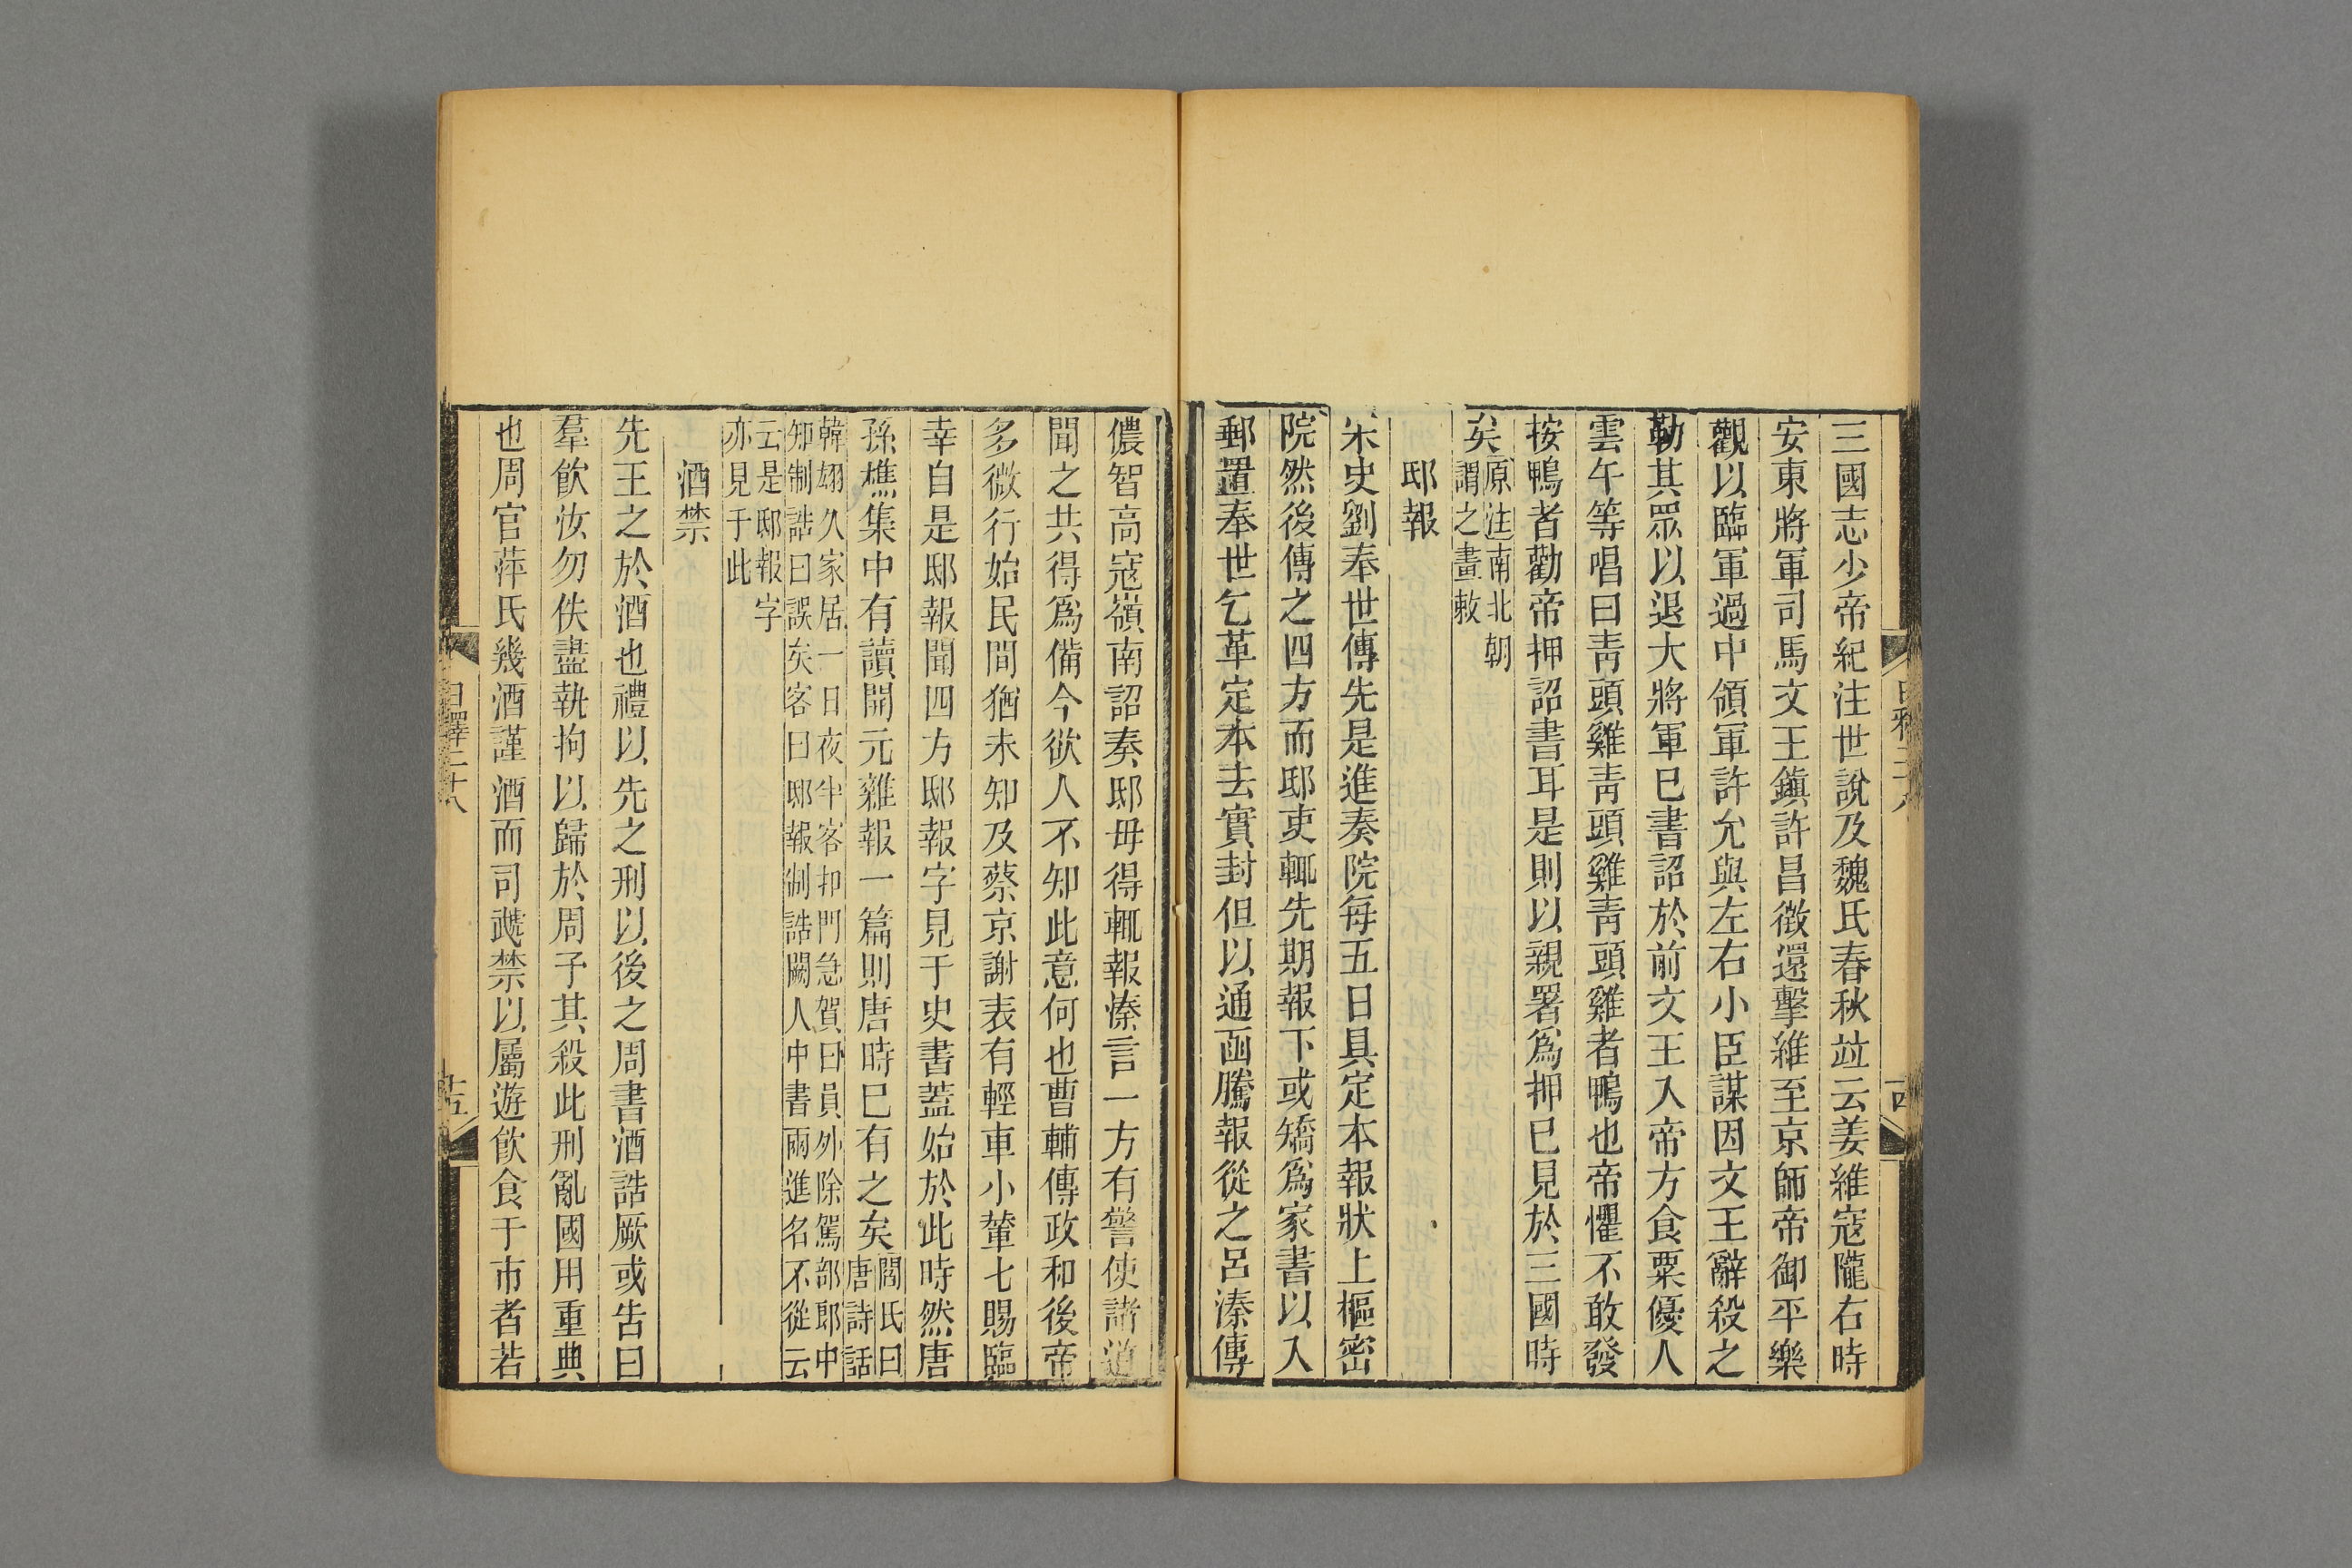 三國志少帝紀注世說及魏氏春秋竝云姜維寇隴右時
安東將軍司馬文王鎮許昌徵還擊維至京師帝御平樂
觀以臨軍過中領軍許允與左右小臣謀因文王辭殺之
勒其眾以退大將軍已書詔於前文王入帝方食粟優人
雲午等唱曰靑頭雞靑頭雞靑頭雞者鴨也帝懼不敢發
按鴨者勸帝押詔書耳是則以親署爲押已見於三國時
矣原注南北朝
謂之畫敕
邸報
宋史劉奉世傳先是進奏院每五日具定本報狀上樞密
院然後傳之四方而邸吏輒先期報下或矯爲家書以入
郵置奉世乞革定本去實封但以通函騰報從之呂溱傳
儂智高寇嶺南詔奏邸毋得輒報溱言一方有警使諸道
聞之共得爲備今欲人不知此意何也曹輔傳政和後帝
多微行始民間猶未知及蔡京謝表有輕車小輦七賜臨
幸自是邸報聞四方邸報字見于史書蓋始於此時然唐
孫樵集中有讀開元雜報一篇則唐時已有之矣閻氏曰
唐詩話
韓翃久家居一日夜半客扣門急賀曰員外除駕部郎中
知制誥曰誤矣客曰邸報制誥闕人中書兩進名不從云
云是邸報字
亦見于此
酒禁
先王之於酒也禮以先之刑以後之周書酒誥厥或告曰
羣飮汝勿佚盡執拘以歸於周予其殺此刑亂國用重典
也周官萍氏幾酒謹酒而司虣禁以屬遊飮食于市者若
日釋二十八
十五